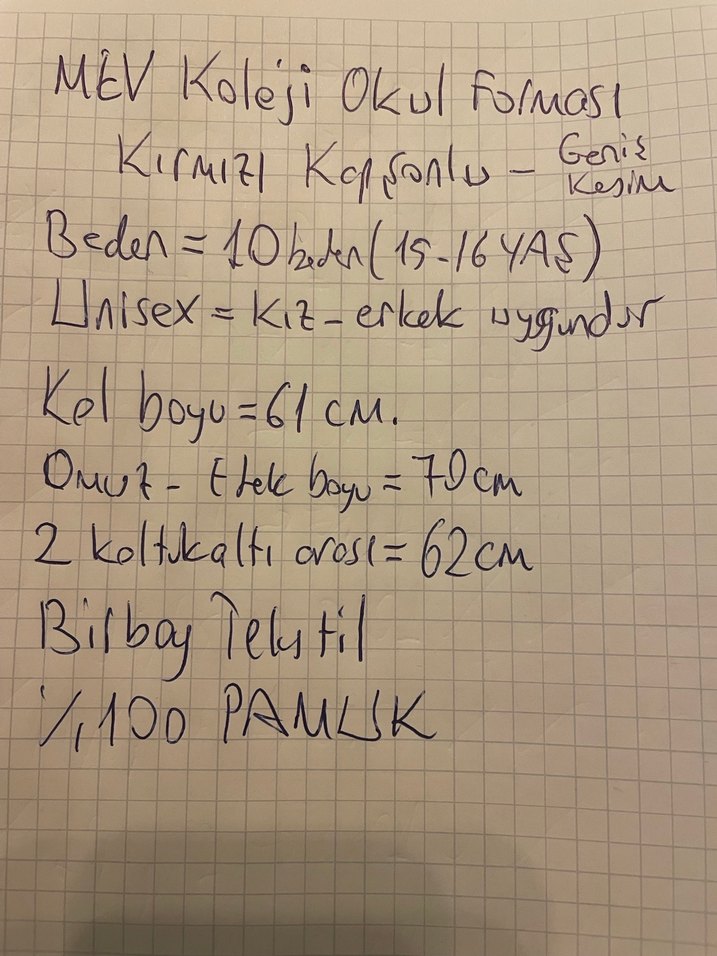 MEV Koleji Okul Forması
Kırmızı Kapşonlu - Geniş Kesim
Beden = 10 beden (15-16 YAŞ)
Unisex = Kız - erkek uygundur
Kol boyu = 61 cm.
Omuz - Etek boyu = 70 cm
2 koltukaltı arası = 62 cm
Birbay Tekstil
%100 PAMUK